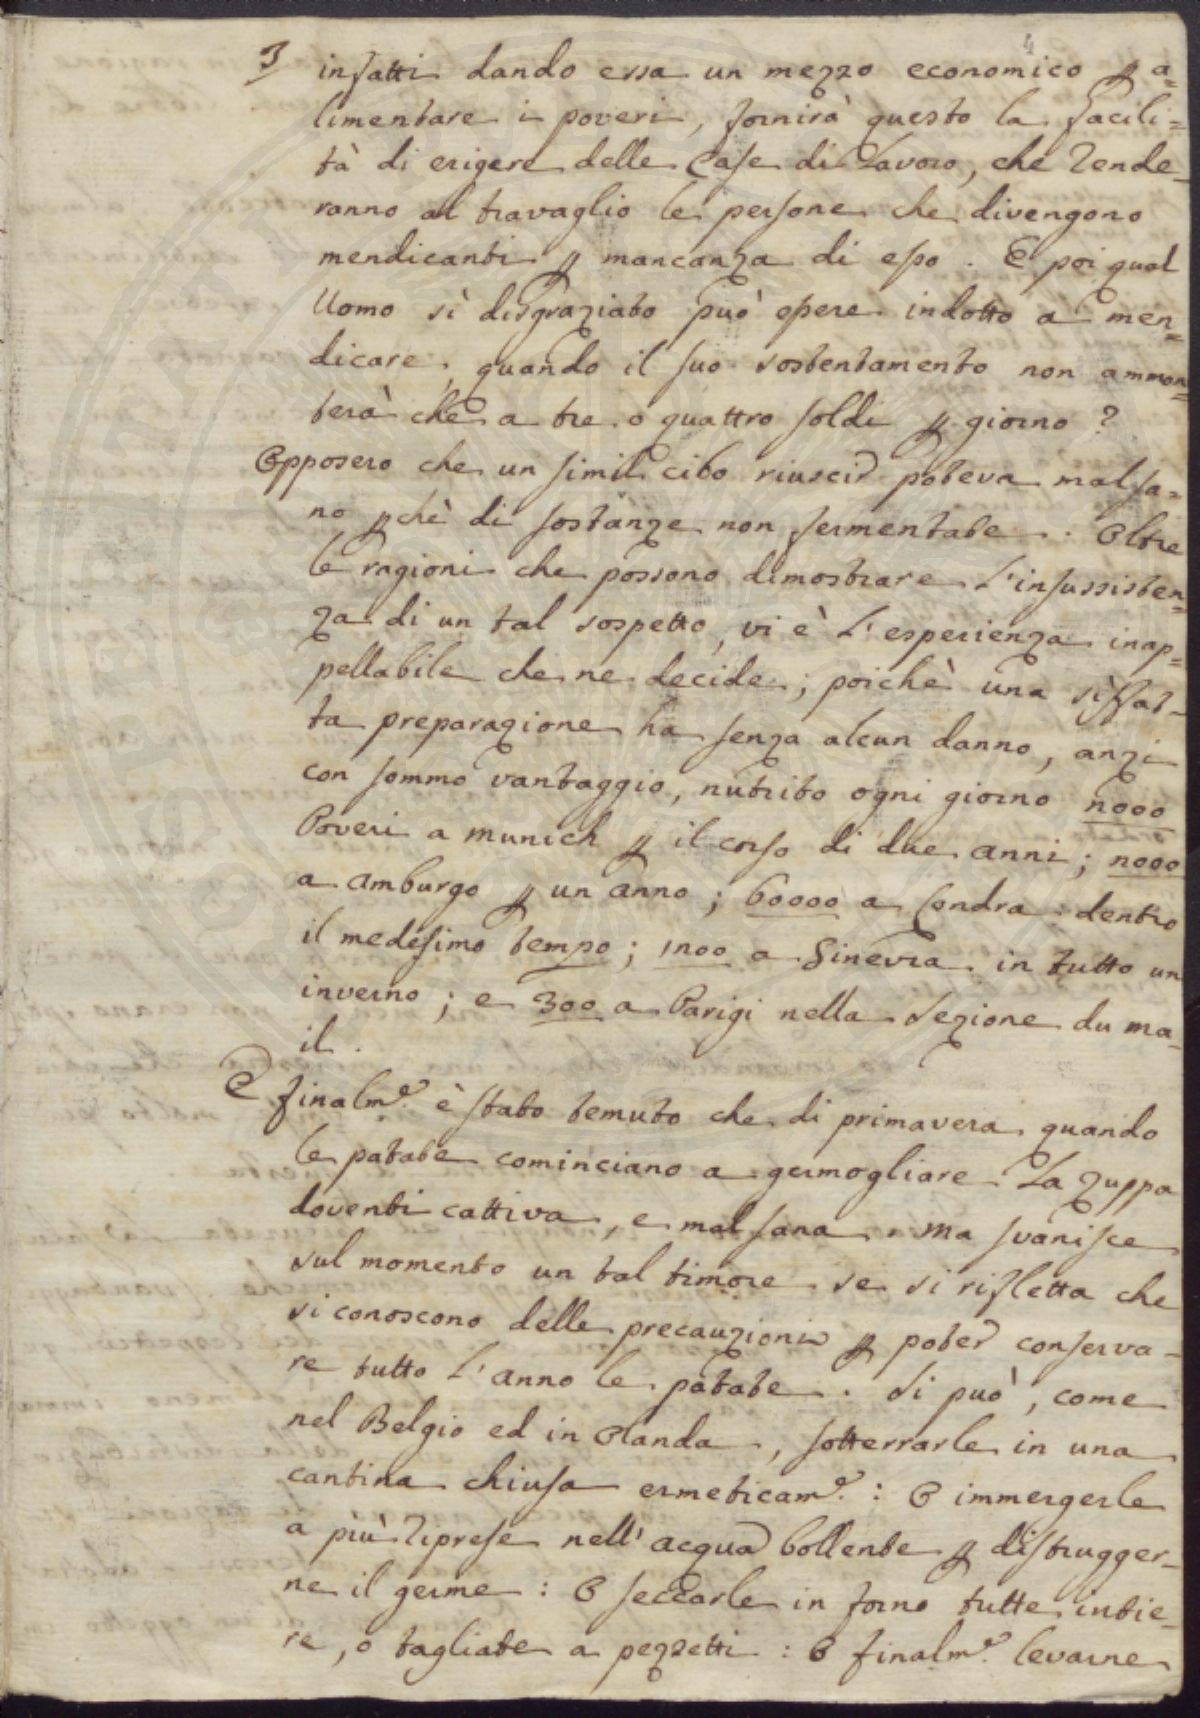 4
3 infatti dando essa un mezzo economico p a=
limentare i poveri, fornirà questo la facili=
tà di erigere delle Case di Lavoro, che rende-
ranno al travaglio le persone che divengono
mendicanti p mancanza di esso. E poi qual
Uomo sì disgraziato può essere indotto a men=
dicare, quando il suo sostentamento non ammon=
terà che a tre o quattro soldi p giorno?
Opposero che un simil cibo riuscir poteva malsa=
no pchè di sostanze non fermentate. Oltre
le ragioni che possono dimostrare L'insussisten=
za di un tal sospetto, vi è L'esperienza inap=
pellabile che ne decide; poichè una siffat-
ta preparazione ha senza alcun danno, anzi
con sommo vantaggio, nutrito ogni giorno
Poveri a munich p il corso di due anni;
a amburgo p un anno; 60000 a Londra dentro
il medesimo tempo; a Ginevra in tutto un
inverno; e 300 a Parigi nella Sezione du ma-
il.
E finalmᵉ è stato temuto che di primavera quando
le patate cominciano a germogliare La zuppa
doventi cattiva, e mal sana. Ma svanisce
sul momento un tal timore se si rifletta che
si conoscono delle precauzioni p poter conserva-
re tutto L'anno le patate. Si può, come
nel Belgio ed in Olanda, sotterrarle in una
cantina chiusa ermeticamᵉ: O immergerle
a più riprese nell'acqua bollente p distrugger-
ne il germe: O seccarle in forno tutte intie-
re, o tagliate a pezzetti: O finalmᵉ levarne